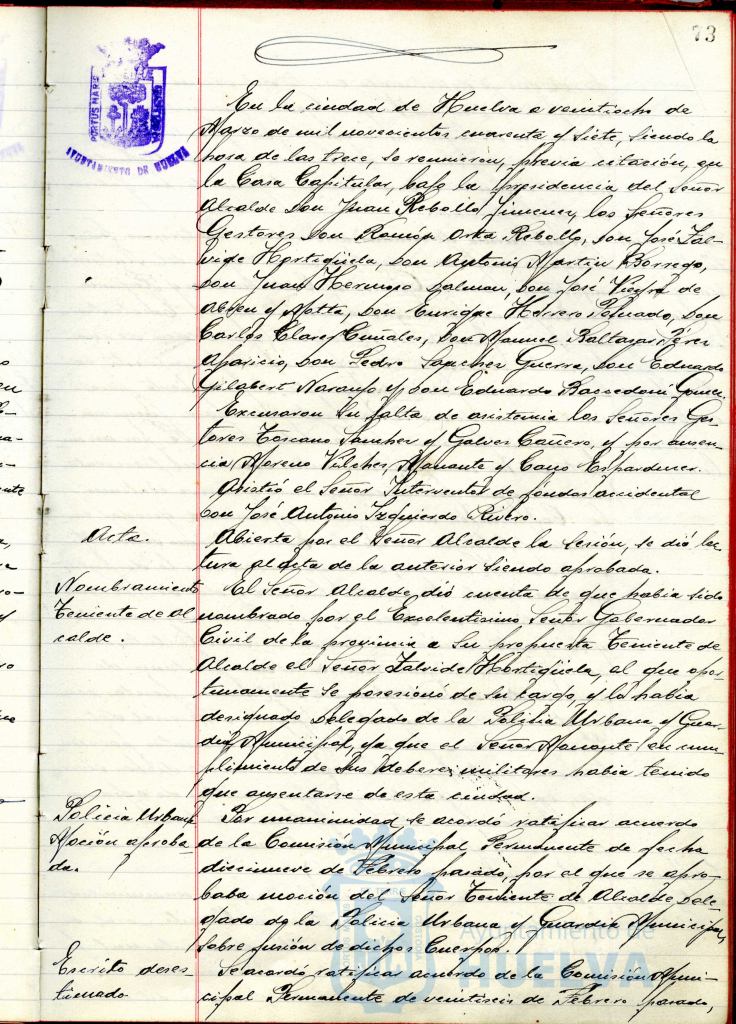 73
PORTUS MARIS
AYUNTAMIENTO DE HUELVA
En la ciudad de Huelva a veintiocho de
Marzo de mil novecientos cuarenta y siete, siendo la
hora de las trece, se reunieron, previa citación, en
la Casa Capitular, bajo la presidencia del Señor
Alcalde Don Juan Rebollo Jimenez, los Señores
Gestores Don Ramón Orta Rebollo, Don José Zal-
vide Hortigüela, Don Antonio Martin Borrego,
Don Juan Hermoso Dalman, Don José Vieyra de
Abreu y Motta, Don Enrique Herrero Peinado, Don
Carlos Clarez Cuñales, Don Manuel Baltazar Pérez
Aparicio, Don Pedro Sanchez Guerra, Don Eduardo
Gilabert Naranjo y Don Eduardo Gomez.
Excusaron su falta de asistencia los Señores Ges-
tores Toscano Sanchez y Galvez Cañero, y por ausen-
cia Moreno Vilches, Manante y Cano Esparducer.
Asistió el Señor Interventor de fondos accidental
Don José Antonio Izquierdo Rivero.
Acta.
Abierta por el Señor Alcalde la sesión, se dió lec-
tura al acta de la anterior siendo aprobada.
Nombramiento
Teniente de Al
calde.
El Señor Alcalde dió cuenta de que habia sido
nombrado por el Excelentisimo Señor Gobernador
Civil de la provincia a su propuesta Teniente de
Alcalde el Señor Zalvide Hortigüela, el que opor-
tunamente se posesionó de su cargo, y lo habia
designado Delegado de la Policia Urbana y Guar-
dia Municipal, ya que el Señor Manante en cum-
plimiento de sus deberes militares habia tenido
que ausentarse de esta ciudad.
Policia Urbana
Moción aproba-
da.
Por unanimidad se acordó ratificar acuerdo
de la Comisión Municipal Permanente de fecha
diecinueve de Febrero pasado, por el que se apro-
baba moción del Señor Teniente de Alcalde Dele-
gado de la Policia Urbana y Guardia Municipal,
sobre fusión de dichos Cuerpos.
Escrito deses
timado
Se acordó ratificar acuerdo de la Comisión Muni-
cipal Permanente de veintiseis de Febrero pasado,
Ayuntamiento de
HUELVA